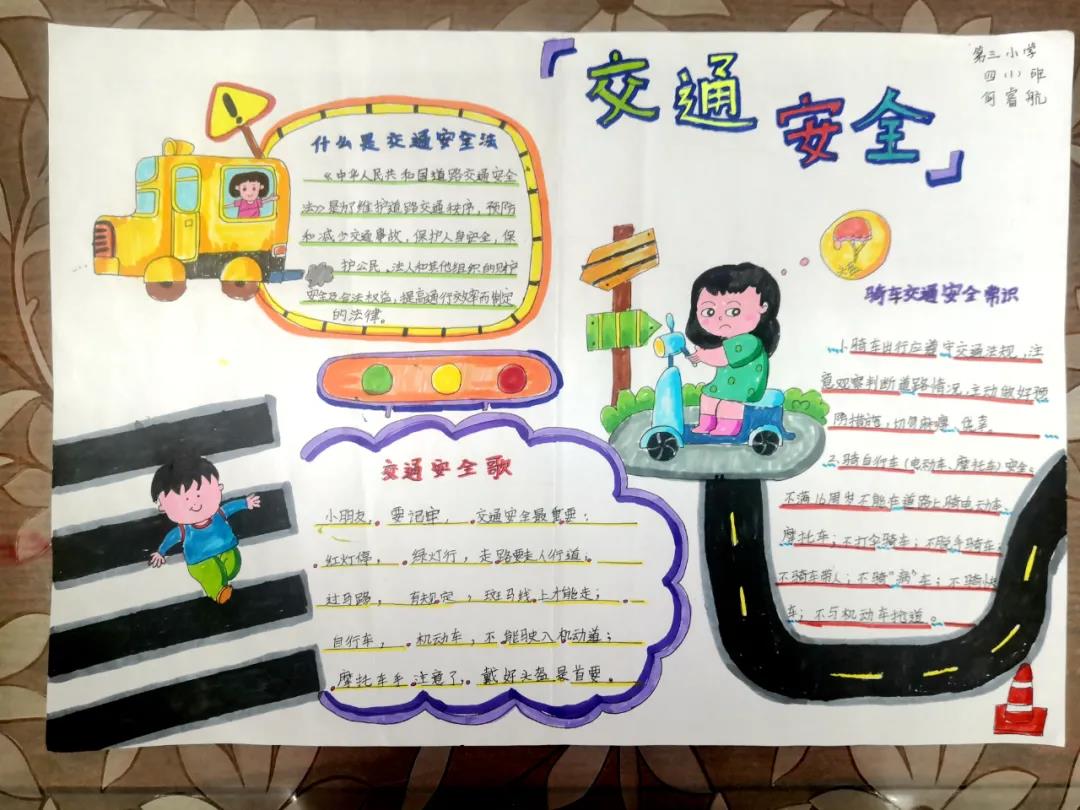 交通安全
第三小学
四(1)班
何睿航
什么是交通安全法
《中华人民共和国道路交通安全
法》是为了维护道路交通秩序，预防
和减少交通事故，保护人身安全，保
护公民、法人和其他组织的财护
安全及合法权益，提高通行效率而制定
的法律。
交通安全歌
小朋友，要记牢，交通安全最重要；
红灯停，绿灯行，走路要走人行道；
过马路，有规定，斑马线上才能走；
自行车，机动车，不能驶入机动道；
摩托车手注意了，戴好头盔是首要。
骑车交通安全常识
1、骑车出行应遵守交通法规，注
意观察判断道路情况，主动做好预
防措施，切勿麻痹
2、骑自行车(电动车、摩托车)安全。
不满16周岁不能在道路上骑电动车、
摩托车；不打伞骑车；不脱手骑车；
不骑车带人；不骑"病"车；不骑快
车；不与机动车抢道。